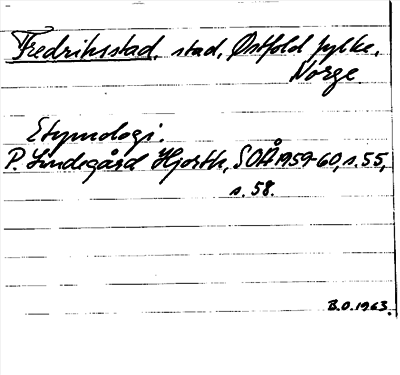 Fredrikstad, stad, Østfold fylke,
Norge
Etymologi.
P. Lindegård Hjorth, SOÅ 1959-60, s. 55,
s. 58.
B.O. 1963.